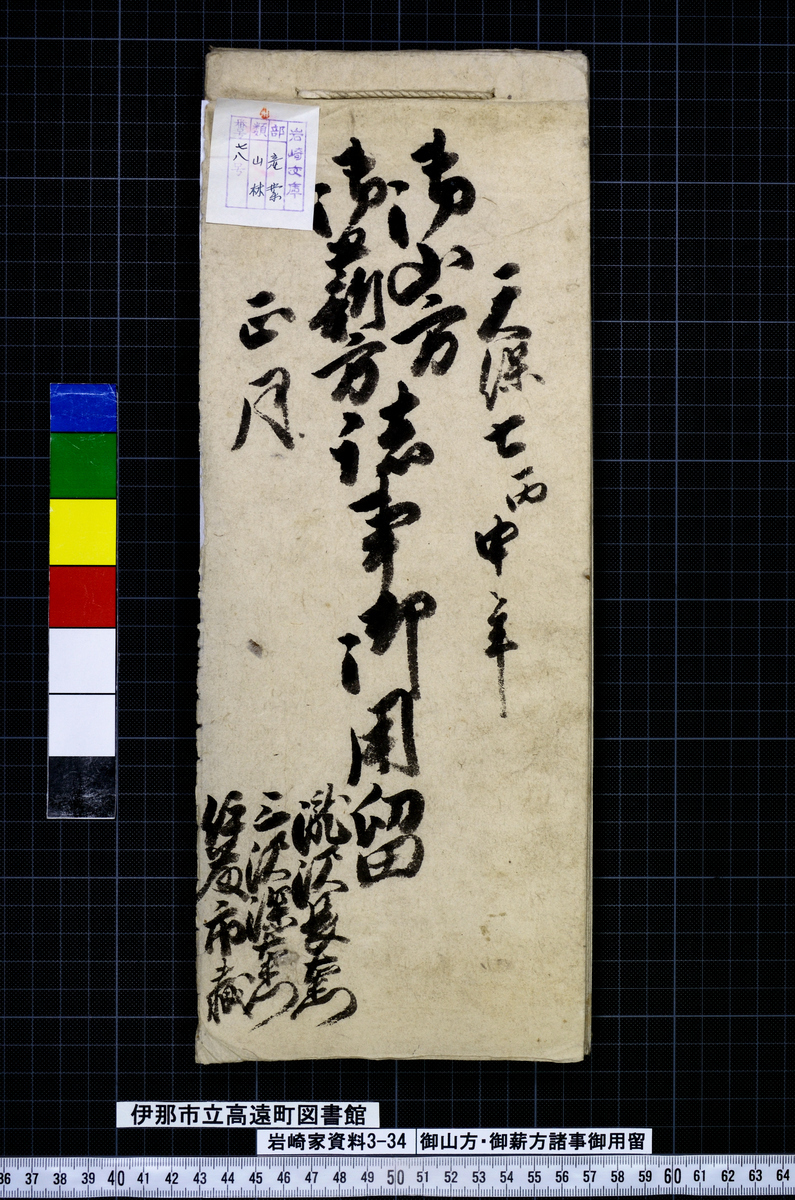 天保七丙申年
御山方
御薪方
諸事御用留
正月
瀧沢長左衛門
三沢深右衛門
伊藤市蔵
岩崎文庫
部 産業
類 山林
番号 七八
伊那市立高遠町図書館
岩崎家資料3-34
御山方・御薪方諸事御用留
36 37 38 39 40 41 42 43 44 45 46 47 48 49 50 51 52 53 54 55 56 57 58 59 60 61 62 63 64